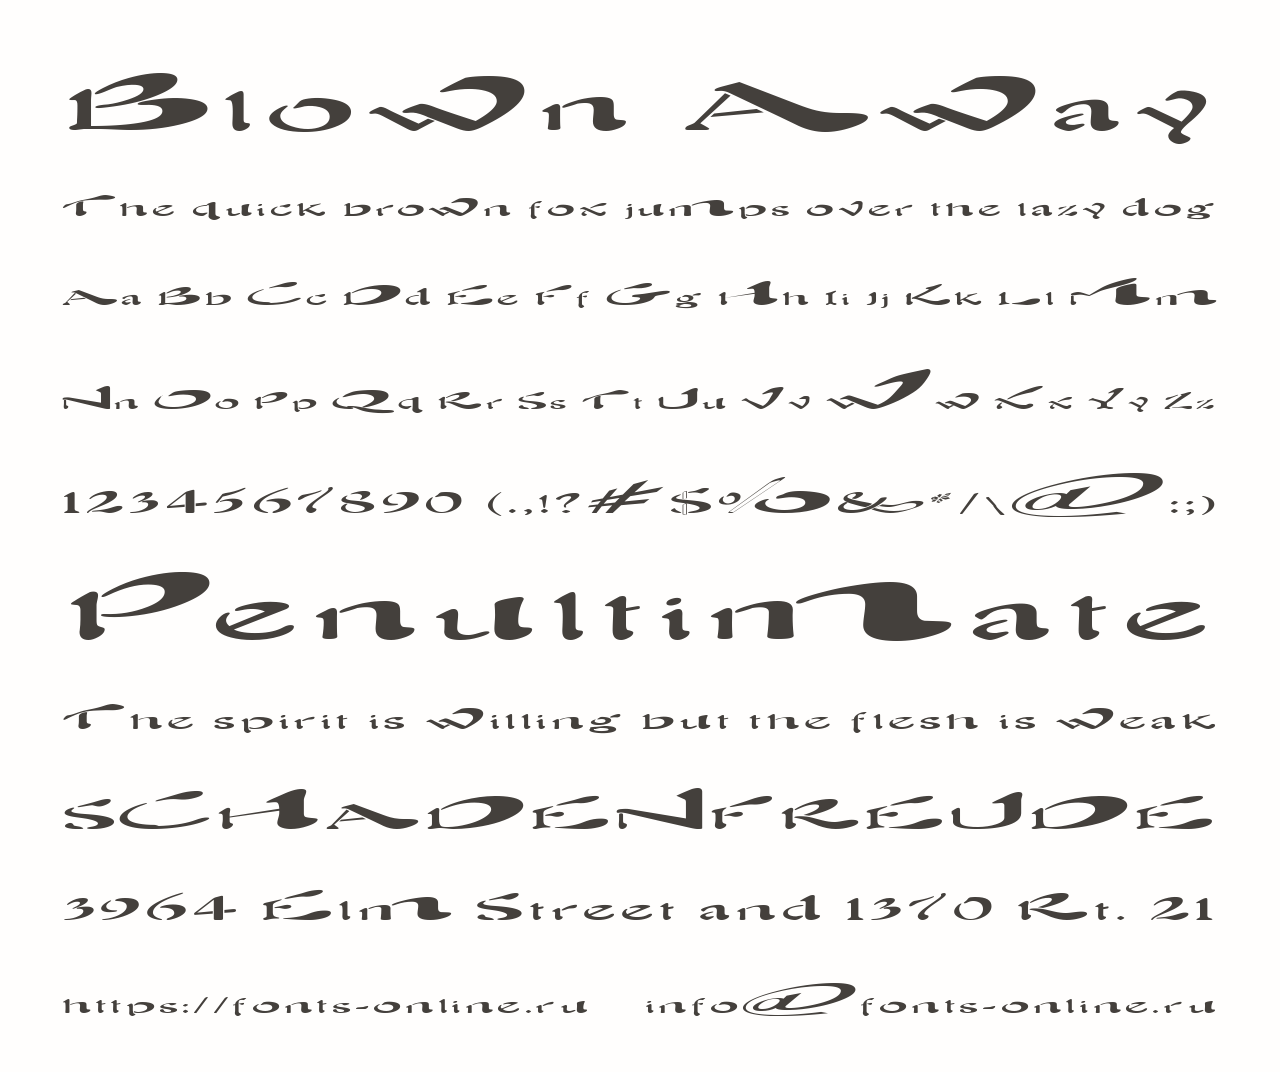 Blown Away
The quick brown fox jumps over the lazy dog
Aa Bb Cc Dd Ee Ff Gg Hh Ii Jj Kk Ll Mm
Nn Oo Pp Qq Rr Ss Tt Uu Vv Ww Xx Yy Zz
1234567890 (.,!?#$%&*/\@:;)
Penultimate
The spirit is willing but the flesh is weak
SCHADENFREUDE
3964 Elm Street and 1370 Rt. 21
https://fonts-online.ru info@fonts-online.ru